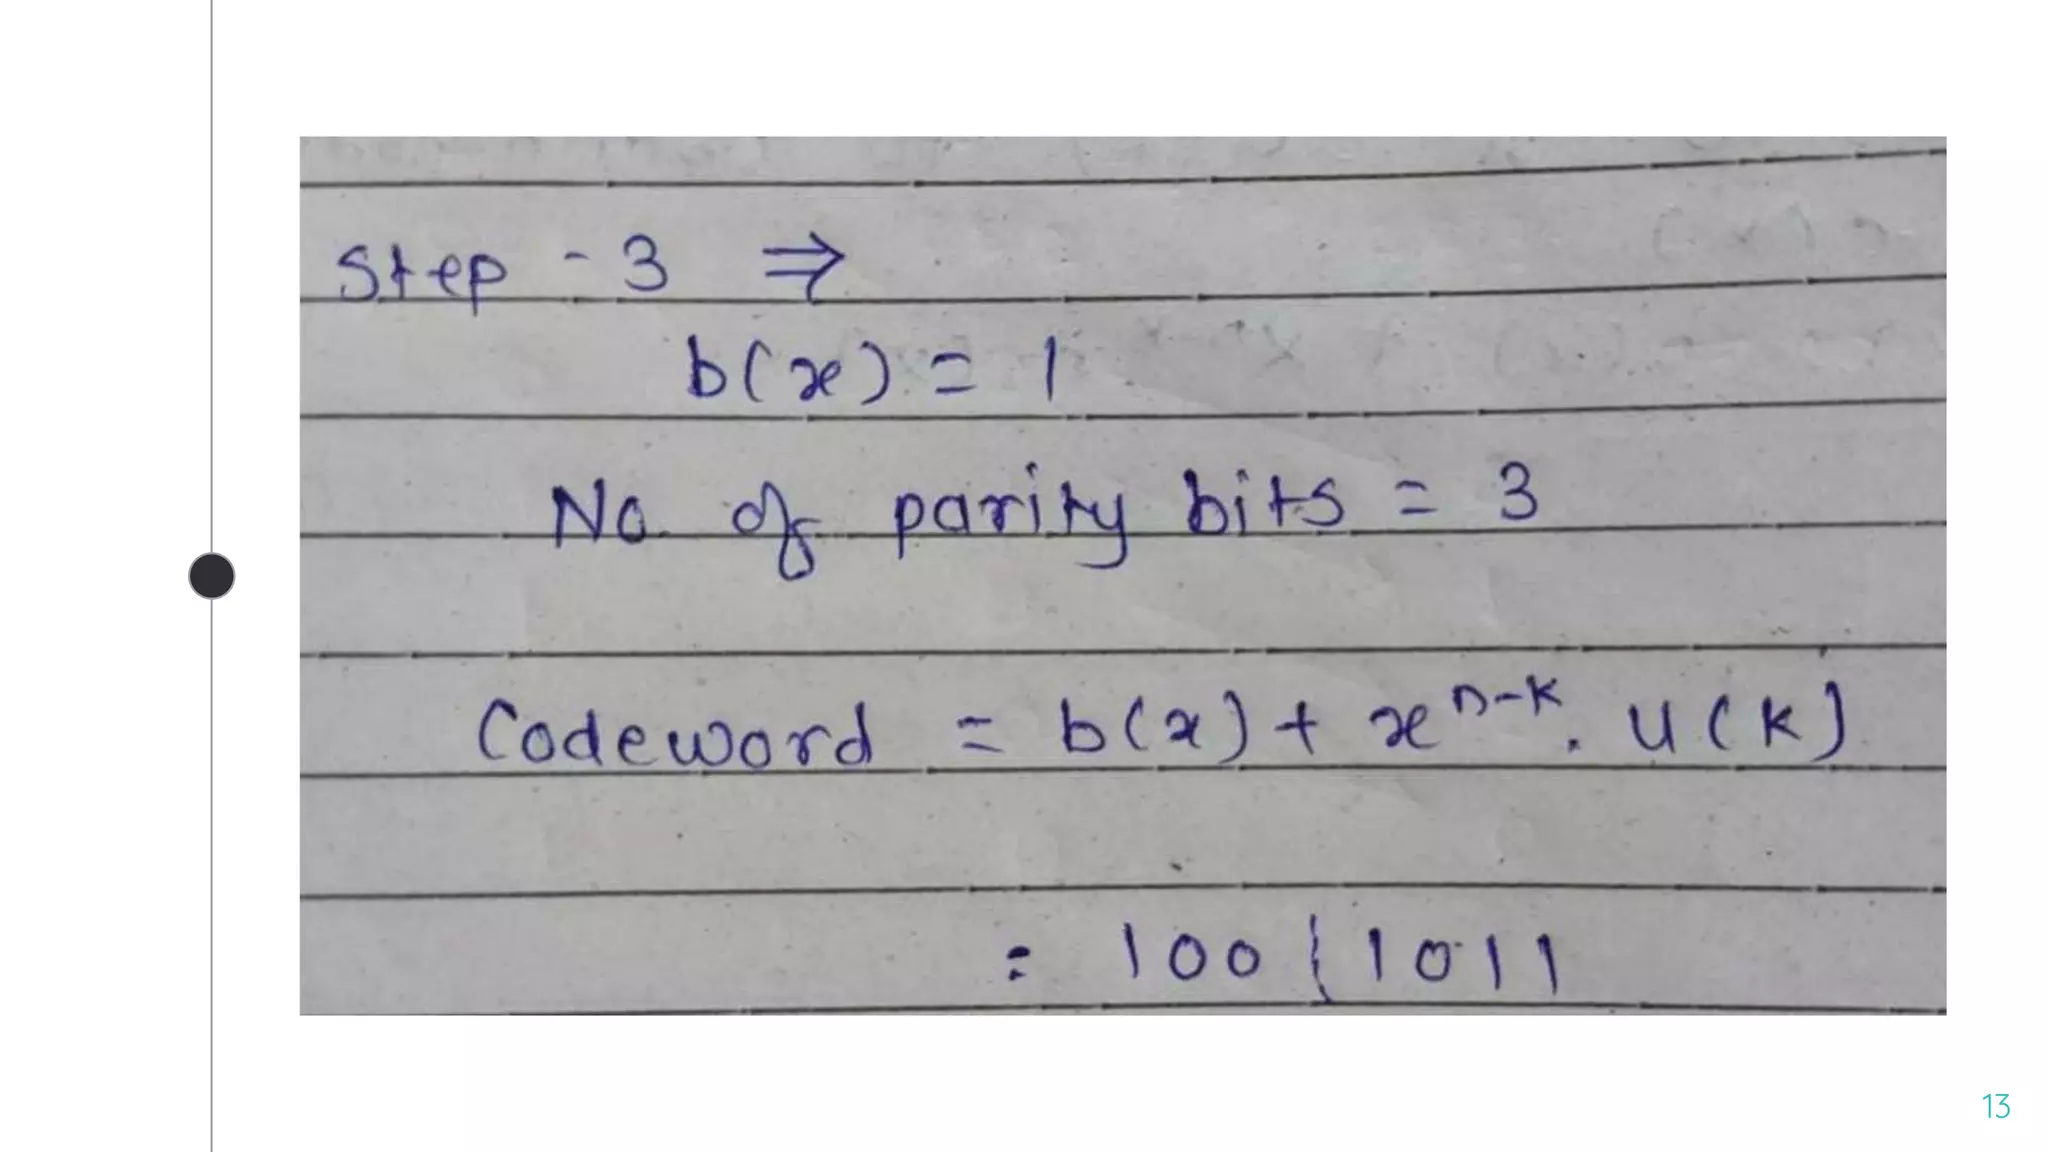 Step - 3 ⇒
b(x) = 1
No. of parity bits = 3
Codeword = b(x) + x^{n-k} . u(k)
= 100 ¦ 1011
13